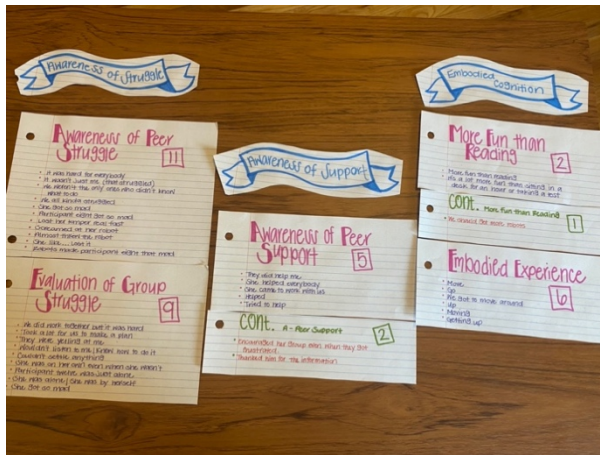 Awareness of Struggle
Awareness of Peer
Struggle
11
• It was hard for everybody
• It wasn't just me (that struggled)
• We weren't the only ones who didn't know
what to do
• We all kinda struggled
• She got so mad
• Participant eight got so mad
• Lost her temper real fast
• Screamed at her robot
• Almost threw the robot
• She like... lose it
• made participant eight that mad
Evaluation of Group
Struggle
9
• We did work together but it was hard
• Took a lot for us to make a plan
• They were yelling at me
• Wouldn't listen to me / know how to do it
• Couldn't decide anything
• She was on her own even when she wasn't
• Participant twelve was just alone
• She was alone / she was by herself
• She got so mad
Awareness of Support
Awareness of Peer
Support
5
• They did help me
• She helped everybody
• She came to work with us
• Helped
• Tried to help
CONT. A - Peer Support
2
• Encouraged her group even when they got
frustrated
• Thanked him for the information
Embodied
Cognition
More Fun than
Reading
2
• More fun than reading
• It's a lot more fun than sitting in a
desk for an hour or taking a test
CONT. More Fun than Reading
1
Embodied Experience
6
• Move
• Go
• We got to move around
• Up
• Moving
• Getting up